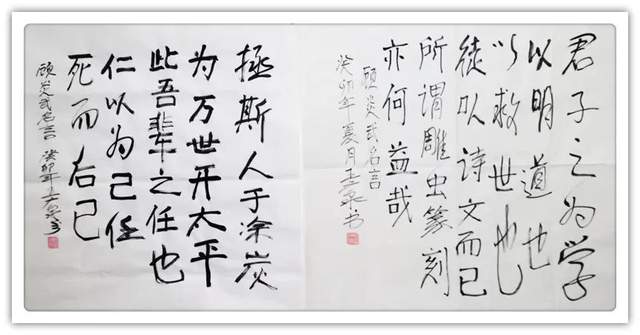 君子之为学
以明道也
以救世也
徒以诗文而已
所谓雕虫篆刻
亦何益哉
顾炎武名言
癸卯年夏月 书
拯斯人于涂炭
为万世开太平
此吾辈之任也
仁以为己任
死而后已
顾炎武名言 癸卯年